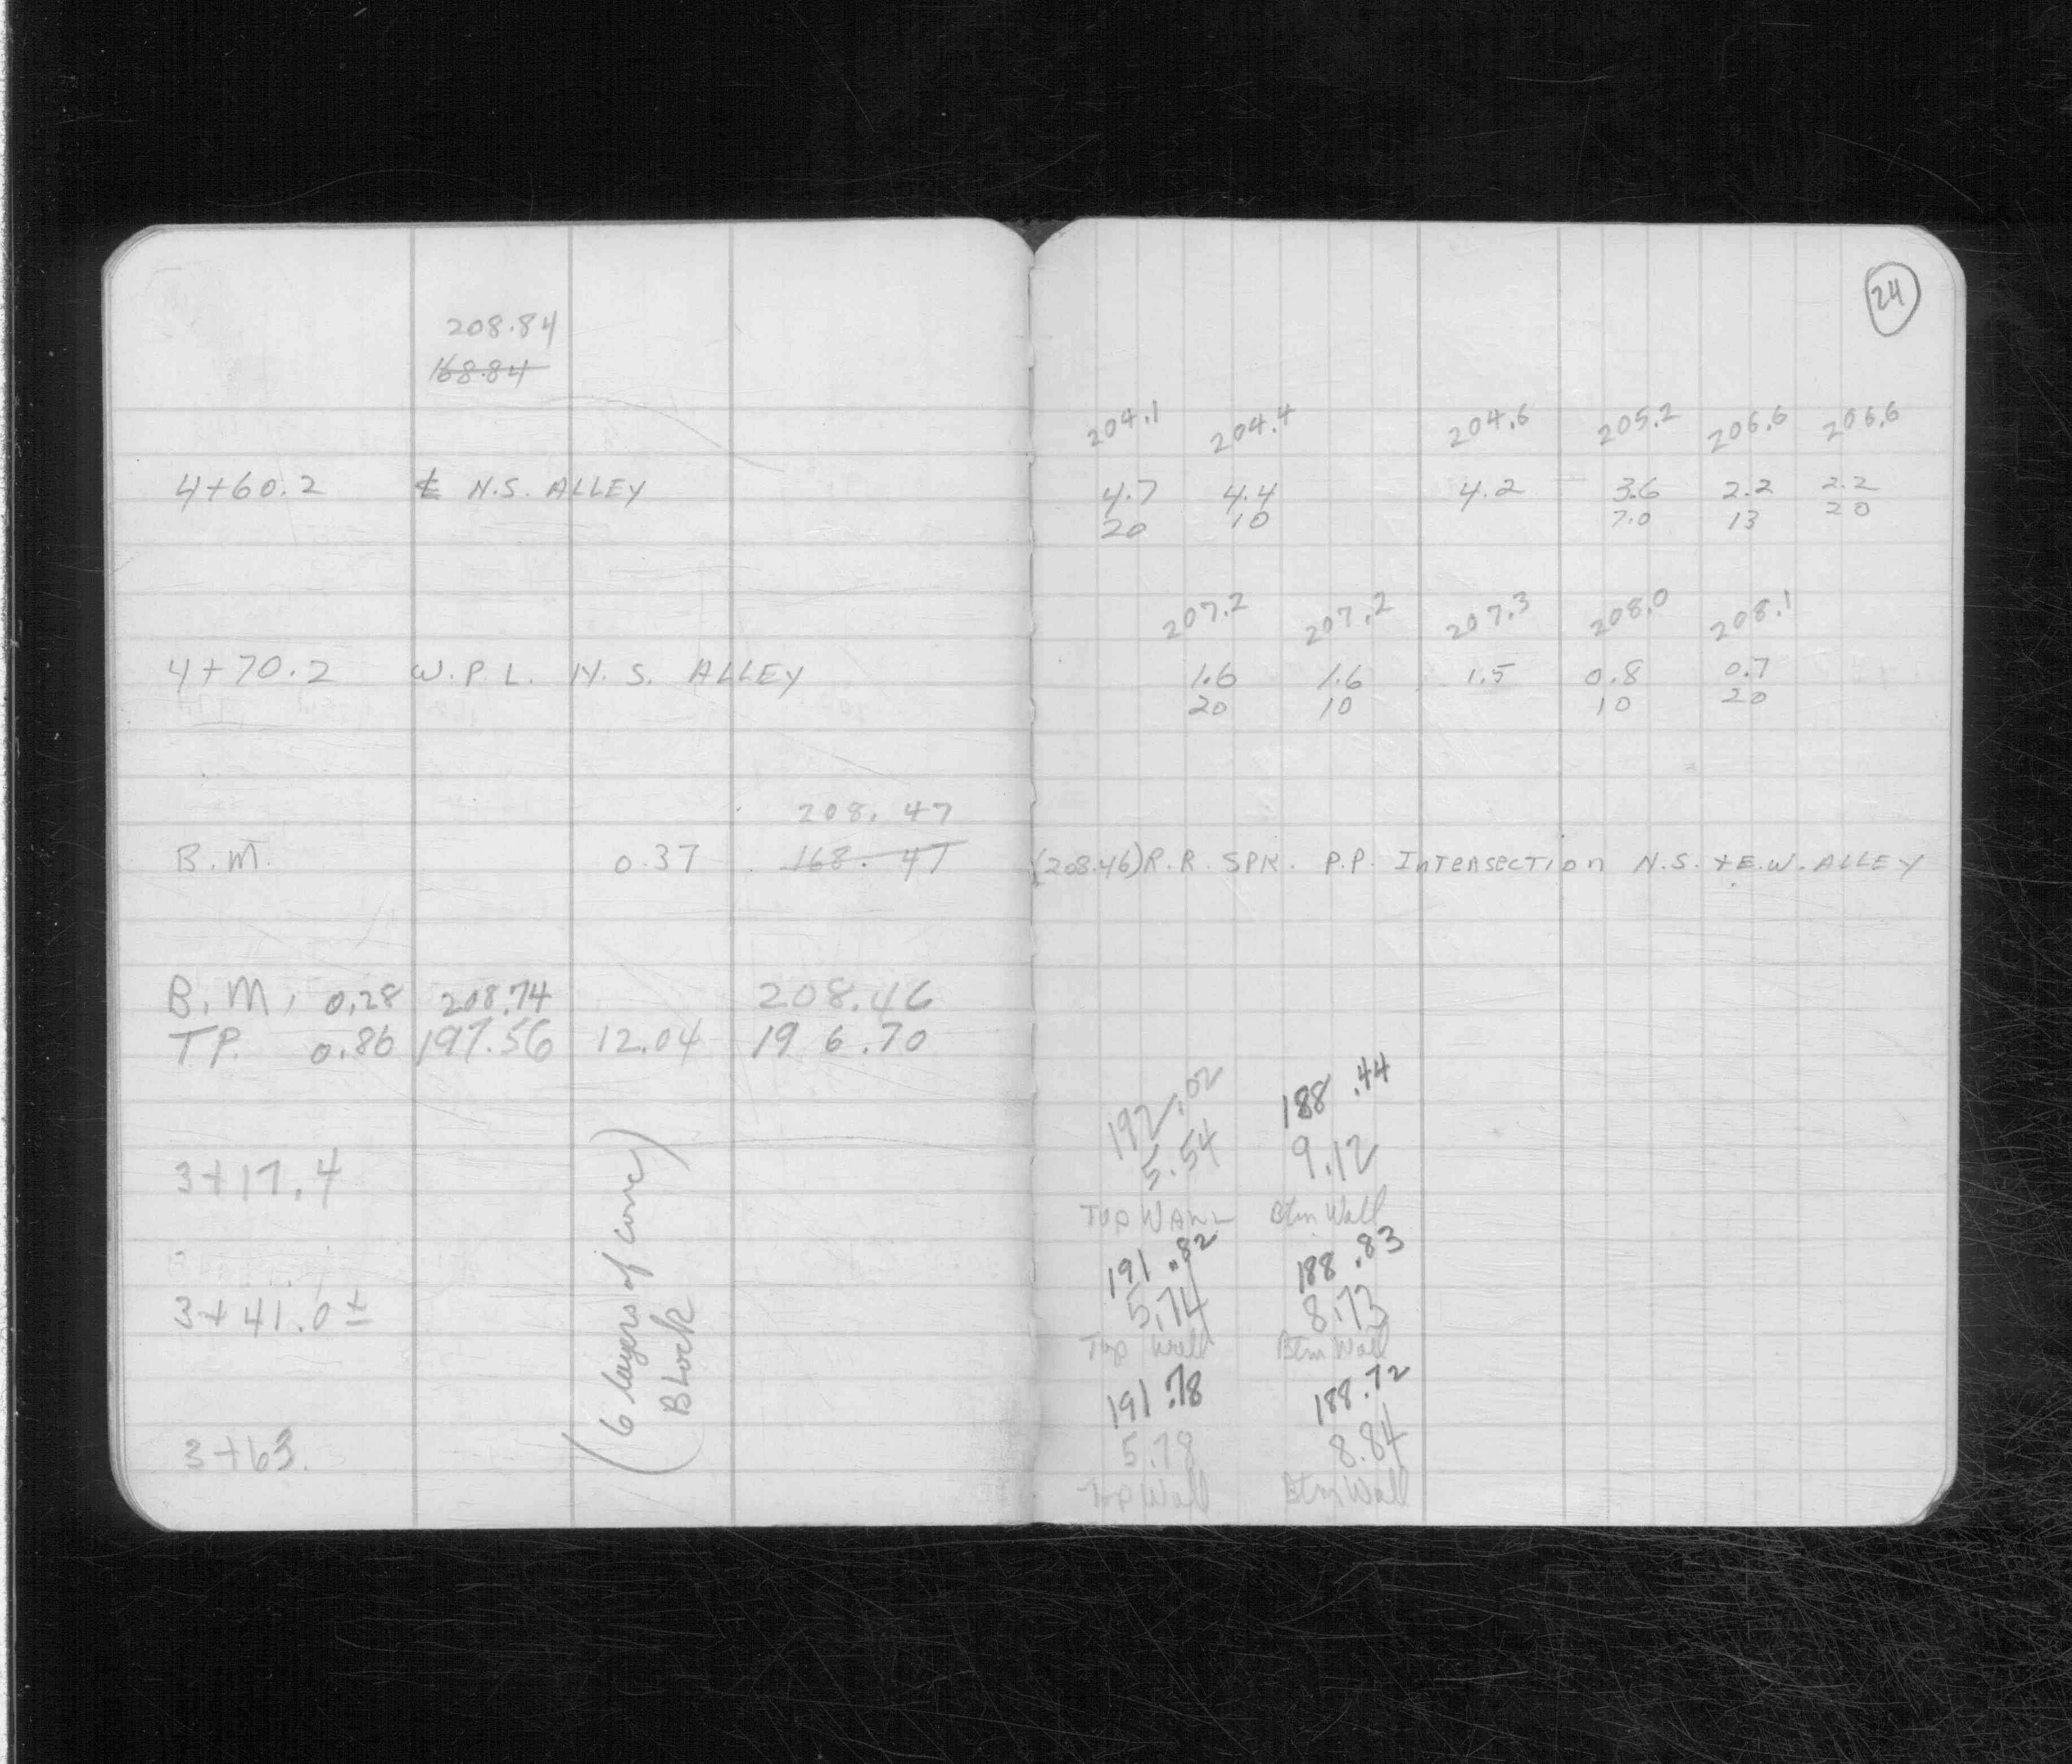 208.84
168.84
4+60.2 ℄ N.S. ALLEY
4+70.2 W.P.L. N.S. ALLEY
208.47
B.M. 0.37 168.47
B.M. 0.28 208.74 208.46
T.P. 0.86 197.56 12.04 196.70
3+17.4
3+41.0±
3+63.
(6 layers of conc)
Block
24
204.1 204.4 204.6 205.2 206.6 206.6
4.7 4.4 4.2 3.6 2.2 2.2
20 10 7.0 13 20
207.2 207.2 207.3 208.0 208.1
1.6 1.6 1.5 0.8 0.7
20 10 10 20
(208.46) R.R. SPK. P.P. Intersection N.S. + E.W. ALLEY
192.02 188.44
5.54 9.12
Top Wall Btm Wall
191.82 188.83
5.74 8.73
Top Wall Btm Wall
191.78 188.72
5.78 8.84
Top Wall Btm Wall